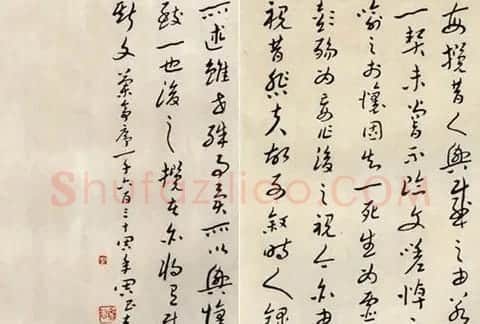 每攬昔人興感之由若
一契未嘗不臨文嗟悼
喻之於懷固知一死生為虛
彭殤為妄作後之視今亦由
視昔悲夫故列敘時人錄
所述雖世殊事異所以興懷
致一也後之攬者亦將有感
斯文 蘭亭序一千六百三十寅年
Shufaziliao.COM